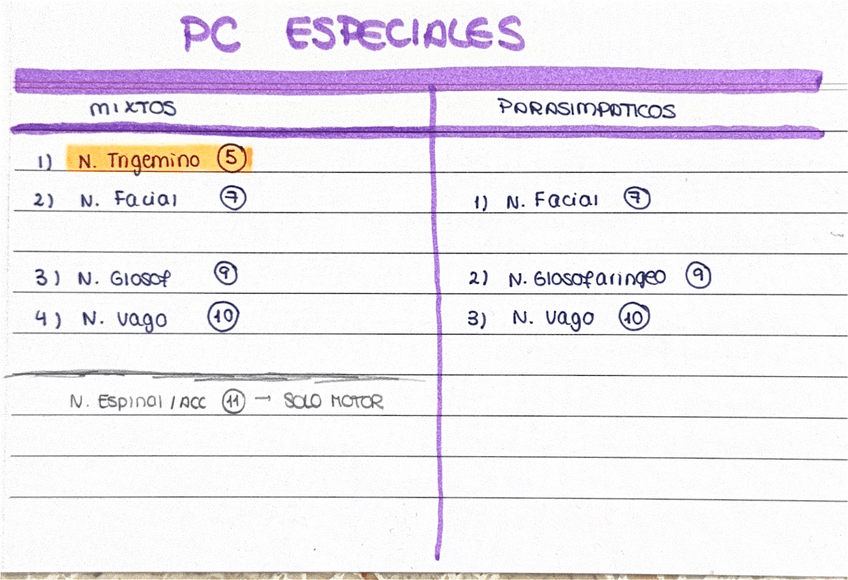 PC ESPECIALES
MIXTOS
PARASIMPATICOS
1) N. Trigemino 5
2) N. Facial 7
1) N. Facial 7
3) N. Glosof 9
2) N. Glosofaringeo 9
4) N. Vago 10
3) N. Vago 10
N. Espinal / ACC 11 → SOLO MOTOR